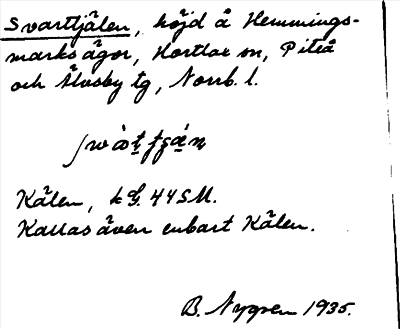 Svarttjälen, höjd å Hemmings-
marks ägor, Hortlax sn, Piteå
och Älvsby tg, Norrb. l.
Kälen, k bl. 44 SM.
Kallas även enbart Kälen.
B. Nygren 1935.